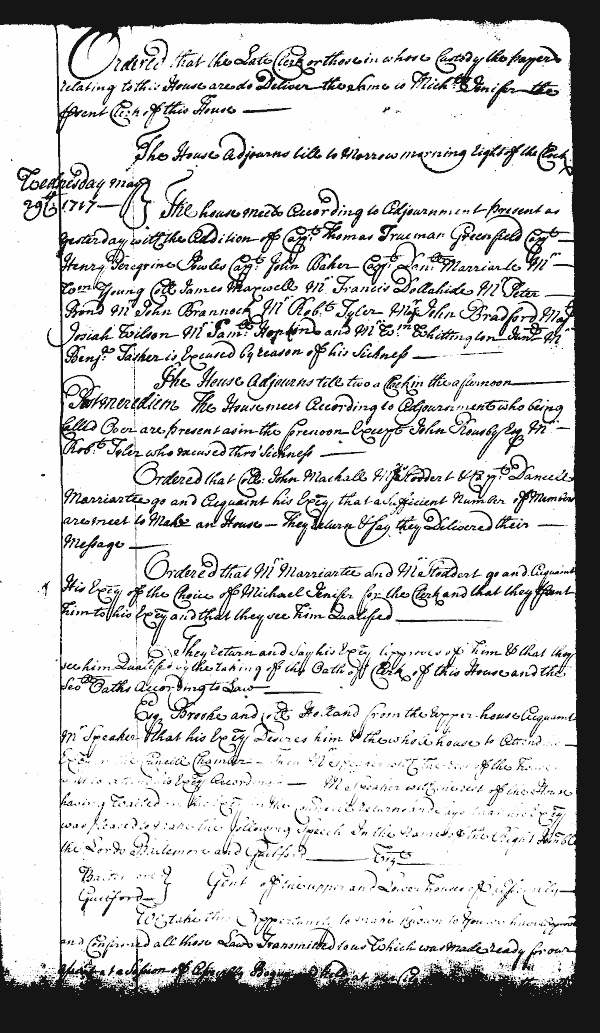 Ordered that the Late Clerk or those in whose Custody the papers
relating to this House are do Deliver the same to Mich.ll Jenifer the
present Clerk of this House
The House Adjourns till to Morrow morning Eight of the Clock
Wednesday may
29th 1717 The house meets According to Adjournment present as
yesterday with the Addition of Capt Thomas Trueman Greenfield Capt
Henry Peregrine Jowles Capt John Baker Capt Danl Marriarte Mr
Wm Young Coll James Maxwell Mr Francis Dollahide Mr Peter
Bond Mr John Brannock Mr Robt Tyler Majr John Bradford Majr
Josiah Wilson Mr Saml Hopkins and Mr Wm Whittington Junr Mr
Benja Tasker is Excused by reason of his Sickness
The House Adjourns till two a Clock in the afternoon
Postmeridiem The House meet According to Adjournment who being
Called Over are present as in the forenoon Except John Rousby Esq Mr
Robt Tyler who excused thro' Sickness
Ordered that Coll John Mackall Mr Stoddert & Capt Daniell
Marriartee go and Acquaint his Excy that a Sufficient Number of Members
are meet to Make an House They return & say they Delivered their
Message
Ordered that Mr Marriartee and Mr Stoddert go and Acquaint
His Excy of the Choice of Michael Jenifer for the Clerk and that they present
him to his Excy and that they see him Qualifed
They return and say his Excy Approves of him & that they
see him Qualifed by the taking of the Oath of Clerk of this House and the
sevl Oaths According to Law
Brooke and Coll Holland from the Upper house Acquaint
Mr Speaker that his Excy Desires him & the whole house to Attend
Excy in the Councill Chamber Then Mr Speaker with the rest of the house
went to attend his Excy According Mr Speaker with the rest of the House
having Waited on his Excy in the returned and says that his Excy
was pleased to make the following Speech In the Name of the Right Honble
the Lords Baltemore and Guilford Vizt
Baltemore
Guilford Gent of the upper and Lower houses of Assembly
We take this Opportunity to make known to You we have
and Confirmed all those Laws Transmitted to us Which was made ready for our
assent at a Session of Assembly Begun and held at our